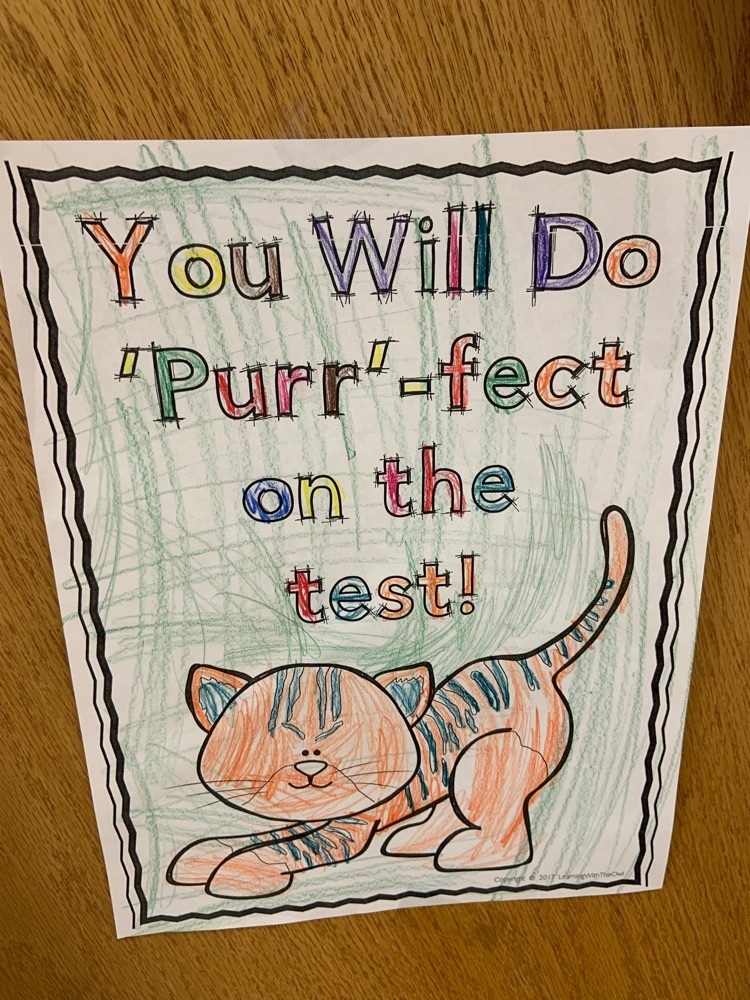 You Will Do
'Purr'-fect
on the
test!
Copyright © 2017 LearningWithTheOwl